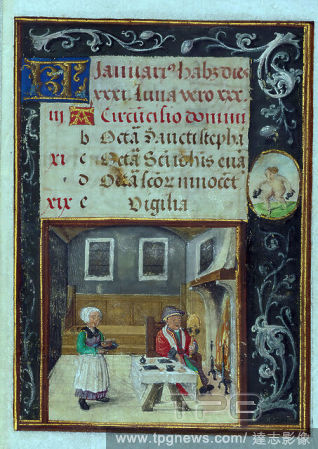 Januari⁹ habz dies
xxxi. luna vero xxx.
iii A Circūcisio domini
b Octā Sancti stepha
xi c Octā Sci iohis euā
d Octā scor innocēt
xix e Vigilia
TPG
www.tpgnews.com/ 達志影像